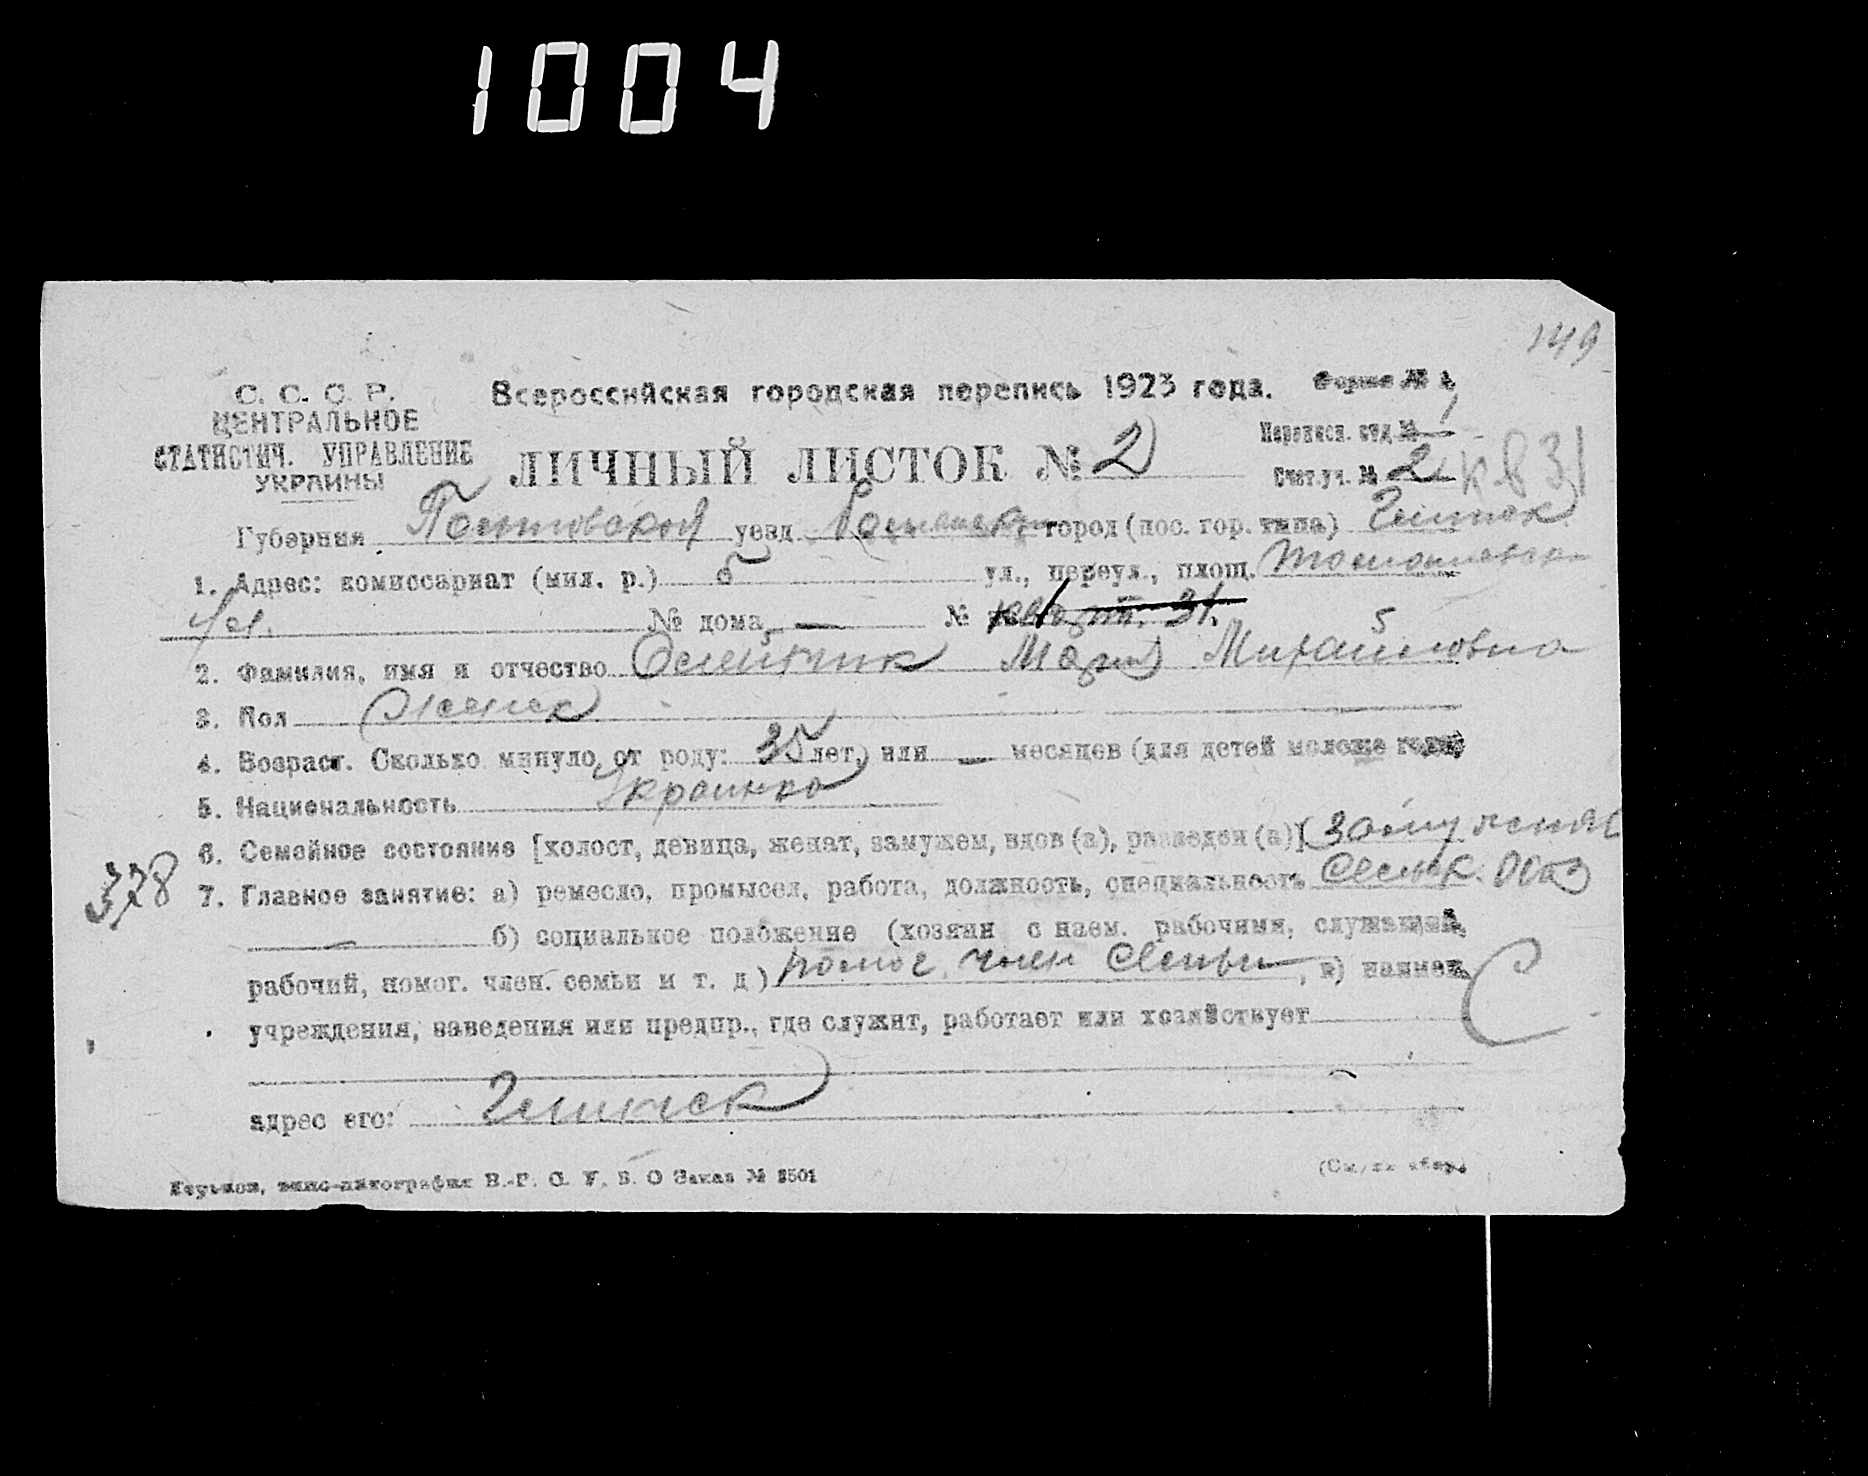 1004
149
С. С. С. Р.
ЦЕНТРАЛЬНОЕ
СТАТИСТИЧ. УПРАВЛЕНИЕ
УКРАИНЫ
Всероссийская городская перепись 1923 года.
Форма № 1
ЛИЧНЫЙ ЛИСТОК № 2
Переписн. отд. № 1
Счетн. уч. № 2 кв 31
Губерния Полтавской уезд город (пос. гор. типа)
1. Адрес: комиссариат (мил. р.) ул., переул., площ.
№ дома, — № кварт. 31.
2. Фамилия, имя и отчество Олейник Мария Михайловна
3. Пол Женск
4. Возраст. Сколько минуло от роду: 35 лет, или — месяцев (для детей моложе года)
5. Национальность Украинка
6. Семейное состояние [холост, девица, женат, замужем, вдов (а), разведен (а)] Замужняя
378
7. Главное занятие: а) ремесло, промысел, работа, должность, специальность Сельск.
— б) социальное положение (хозяин с наем. рабочими, служащий,
рабочий, помог. член. семьи и т. д) помог. член семьи, в) наимен.
учреждения, заведения или предпр., где служит, работает или хозяйствует
адрес его:
Харьков, типо-литография В.-Г. С. У. В. О Заказ № 3501
(См. на обор.)